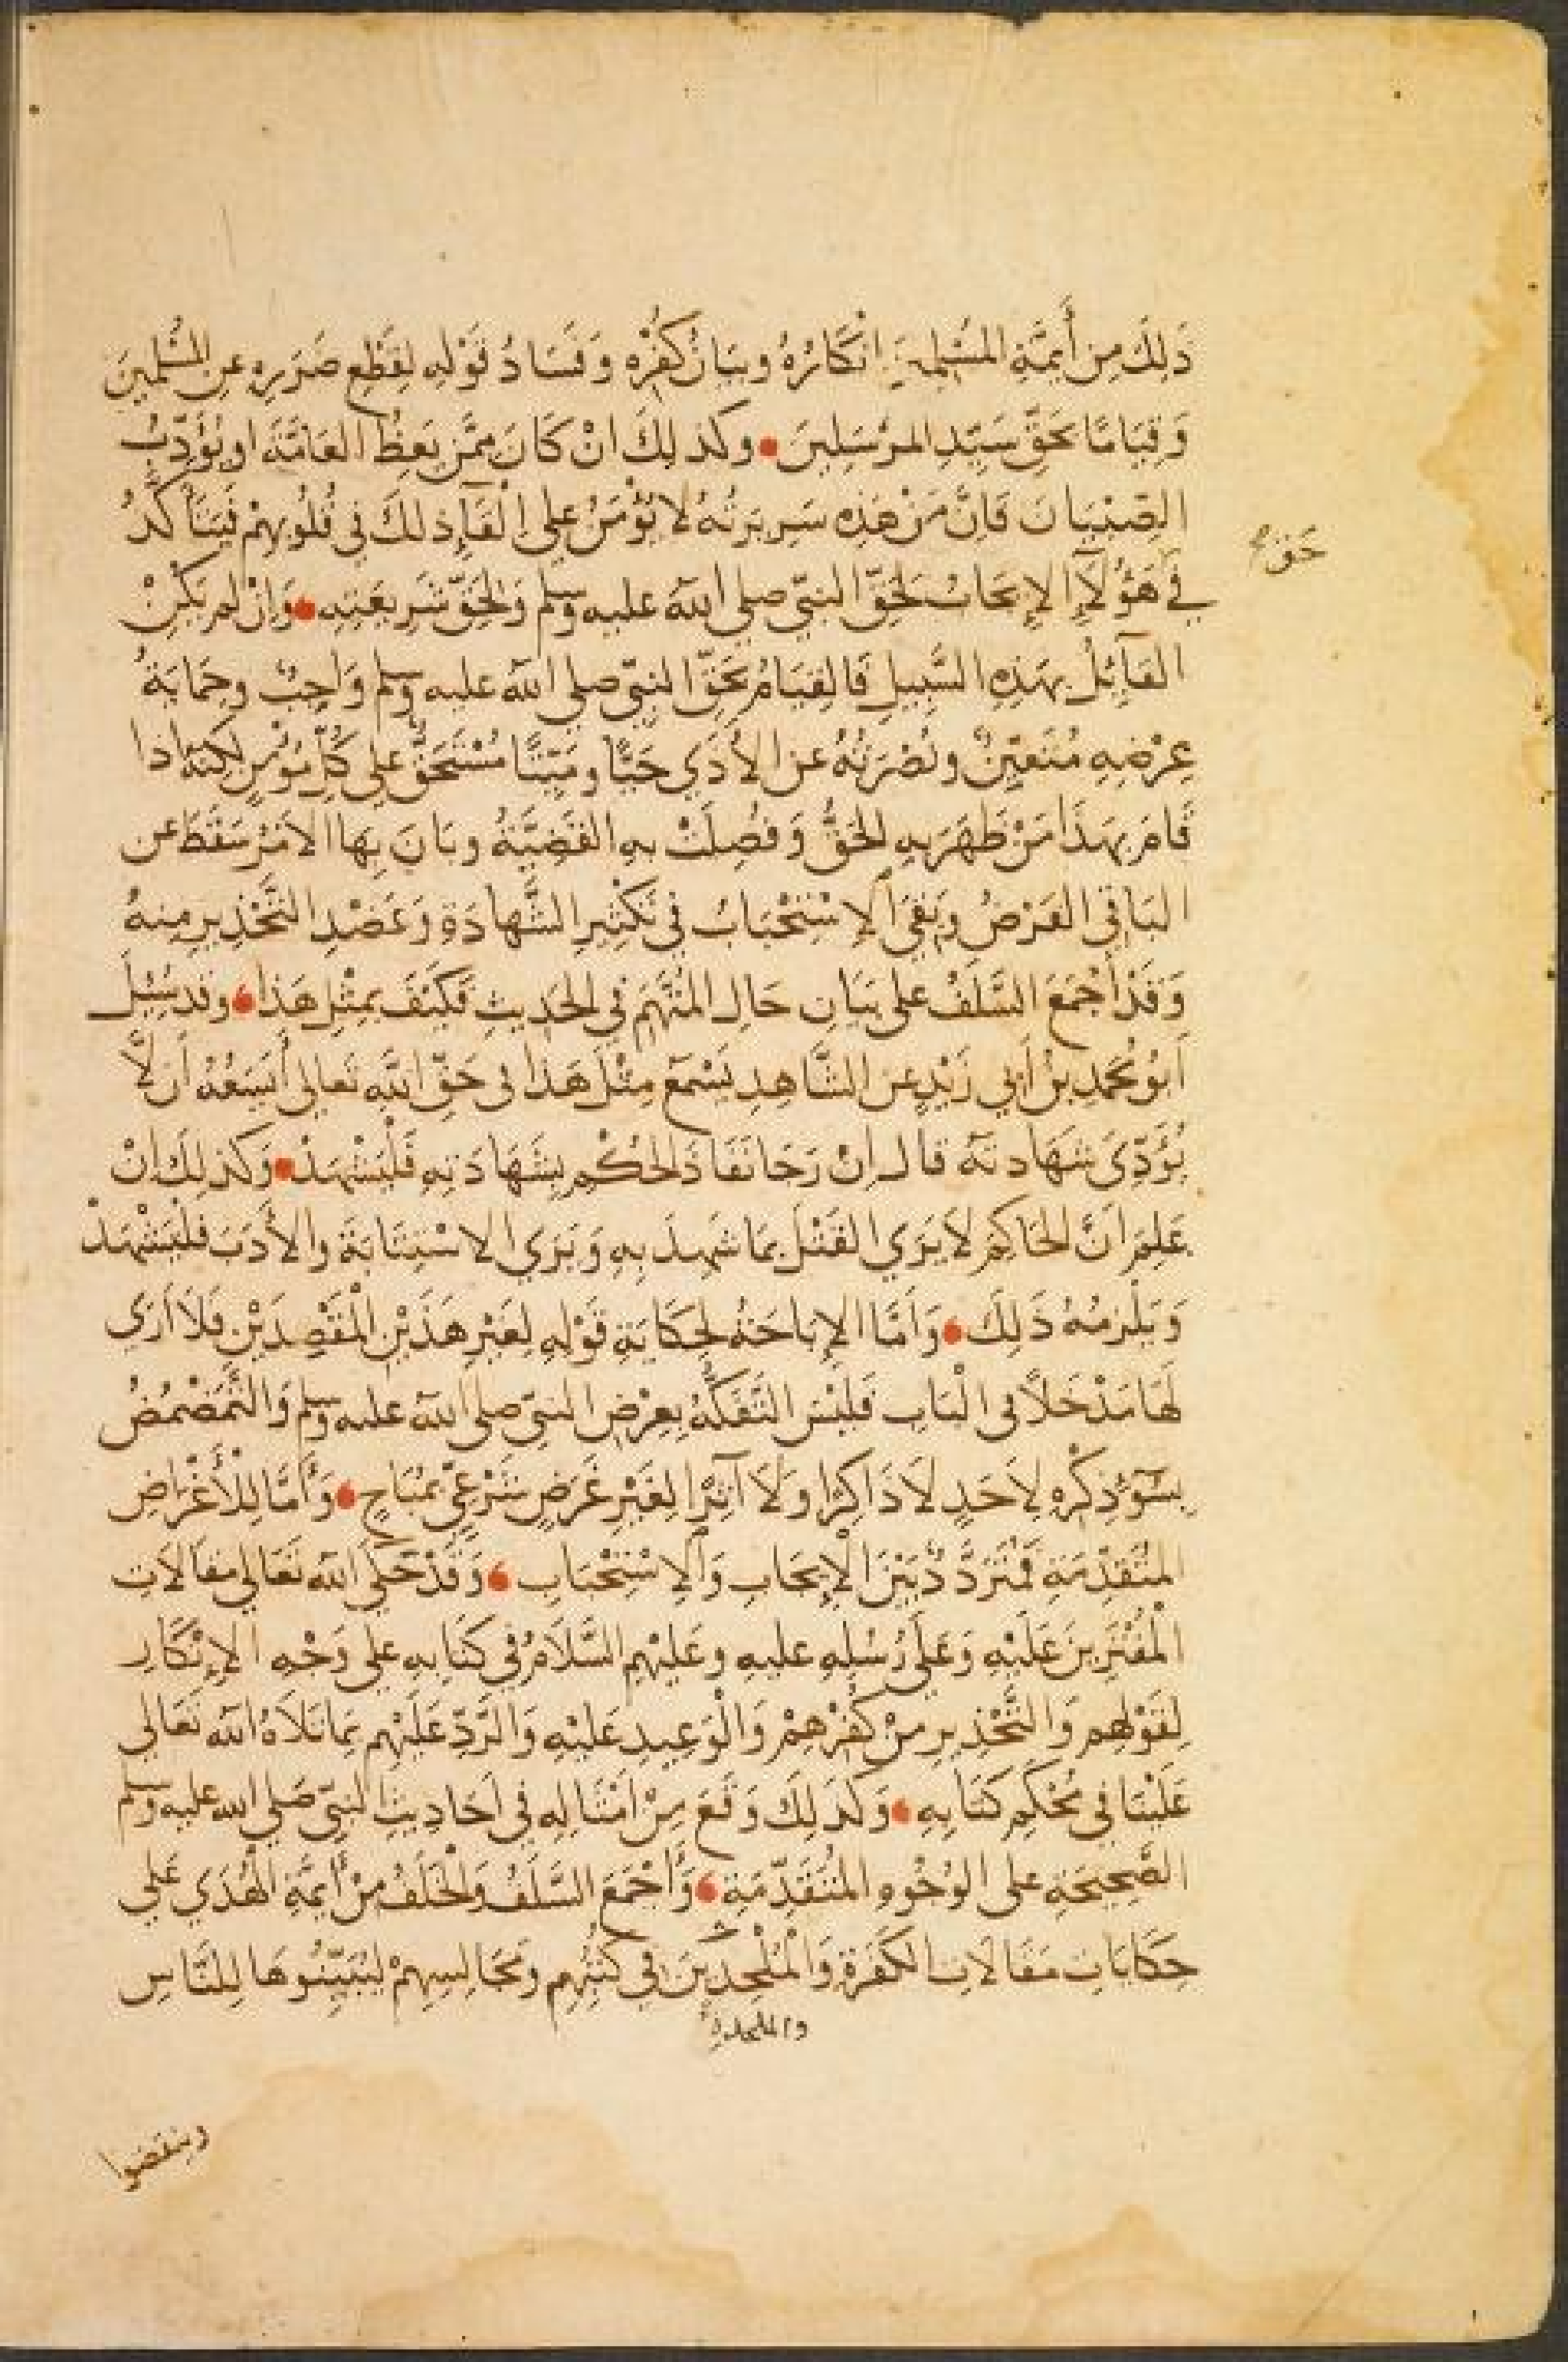 ذَلِكَ مِن أَيِمَّةِ المُسْلِمِينَ اِنْكَارُهُ وبيَانُ كُفْرِه وَفَسَادُ قَوْلِهِ لِقَطْعِ ضَرَرِهِ عنِ المُسْلمينَ
وَقِيَامًا بحَقِّ سَيِّدِ المرْسَلِينَ وكذلِكَ انْ كَانَ ممَّن يَعِظُ العَامَّةَ او يُؤَدِّبُ
الصِّبْيَانَ فَاِنَّ مَنْ هَذِه سَرِيرَتُهُ لا يُؤْمَنُ على اِلْقَآءِ ذلكَ في قُلُوبِهِمْ فَيَتَأَكَّدُ
في هَؤُلَآءِ الإِيجَابُ لحَقِّ النبِيّ صلى الله عليه وسلم وَلحَقِّ شَرِيعَتِهِ وَاِنْ لم يَكُنْ
حَق
القَآئِلُ بهَذِهِ السَّبِيلِ فَالقِيَامُ بحَقِّ النبِيّ صلى الله عليه وسلم وَاجِبٌ وحِمَايَةُ
عِرْضِهِ مُتَعَيِّنٌ ونُصْرَتُهُ عن الأَذَى حَيًّا ومَيِّتًا مُسْتَحَقٌّ على كُلِّ مُؤمنٍ لكِنَّه اذا
قَامَ بهَذَا مَنْ ظَهَرَ بهِ الحَقُّ وَفُصِلَتْ بهِ القَضِيَّةُ وبَانَ بِهَا الاَمْرُ سَقَطَ عن
البَاقِي الفَرْضُ وَبَقِيَ الاِسْتِحْبَابُ في تَكْثِيرِ الشَّهَادَةِ وَعَضْدِ التَّحْذِيرِ مِنهُ
وَقَدْ أَجْمَعَ السَّلَفُ على بيَانِ حَالِ المُتَّهَمِ في الحَدِيثِ فَكَيْفَ بمِثْلِ هَذَا وقد سُئِلَ
اَبُو مُحَمَّدِ بنُ أَبي زَيْدٍ عن الشَّاهِدِ يَسْمَعُ مِثْلَ هَذَا فى حَقِّ اللهِ تَعالى أَيَسَعُهُ أن لَّا
يُؤَدِّىَ شَهَادتَه قال اِنْ رَجَا نَفَاذَ الحُكْمِ بِشَهَادَتِهِ فَلْيَشْهَدْ وَكذلِكَ اِنْ
عَلِمَ اَنَّ الحَاكِمَ لاَ يَرَى القَتْلَ بمَا شَهِدَ بِهِ وَيَرَى الاسْتِتَابَةَ والأَدَبَ فَلْيَشْهَدْ
وَيَلْزَمُهُ ذَلِكَ وَاَمَّا الإِبَاحَةُ لحِكَايَةِ قَوْلِهِ لِغَيْرِ هَذَيْنِ الْمَقْصِدَيْنِ فَلاَ أَرَى
لَهَا مَدْخَلاً فى الْبَابِ فَلَيْسَ التَّفَكُّهُ بِعِرْضِ النبِيّ صلى الله عليه وسلم وَالتَّمَضْمُضُ
بِسُوٓءِ ذِكْرِهِ لِاَحَدٍ لَا ذَاكِرًا وَلَا آثِرًا لِغَيْرِ غَرَضٍ شَرْعِيٍّ بمُبَاحٍ وَأَمَّا لِلأَغْرَاضِ
المُتَقَدِّمَةِ فمُتَرَدَّدٌ بَيْنَ الْإِيجَابِ وَالِاسْتِحْبَابِ وَقَدْ حَكَى الله تَعَالى مَقَالَاتِ
الْمُفْتَرِينَ عَلَيْهِ وَعَلَى رُسُلِهِ عليهِ وعَلَيْهِم السَّلَامُ في كتَابِهِ على وَجْهِ الاِنْكَارِ
لِقَوْلِهِم وَالتَّحْذِيرِ مِنْ كُفْرِهِمْ وَالْوَعِيدِ عَليْهِ وَالرَّدِّ عَلَيْهِم بمَا تَلاَهُ الله تَعَالى
عَلَيْنَا فى مُحْكَمِ كتَابِهِ وَكذلِكَ وَقَعَ مِنْ اَمْثَالِهِ في اَحَادِيثِ النبِيّ صَلى الله عليه وسلم
الصَّحِيحَةِ على الوُجُوهِ المُتَقَدِّمَةِ وَأَجْمَعَ السَّلَفُ وَالْخَلَفُ مِنْ أَيِمَّةِ الْهُدَى عَلى
حِكَايَاتِ مَقَالَاتِ الكَفَرَةِ وَالْمُلْحِدِينَ في كُتُبِهِم ومَجَالِسِهِمْ لِيُبَيِّنُوهَا لِلنَّاسِ
والملحدة
وينقضوا